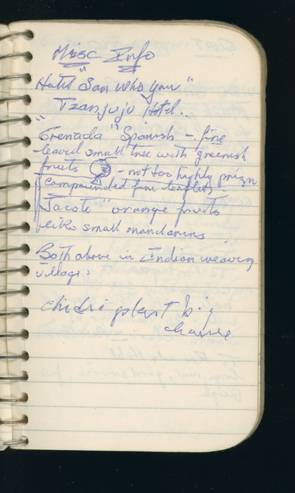 Misc Info
Hotel "San Who you"
Tzanjuju Hotel..
"Grenada" Spanish - fine
leaved small tree with greenish
fruits - not too highly prizn
compounded fine leaflets
"Jocote" orange fruits
like small mandarins
Both above in Indian weaving
village.
plant big